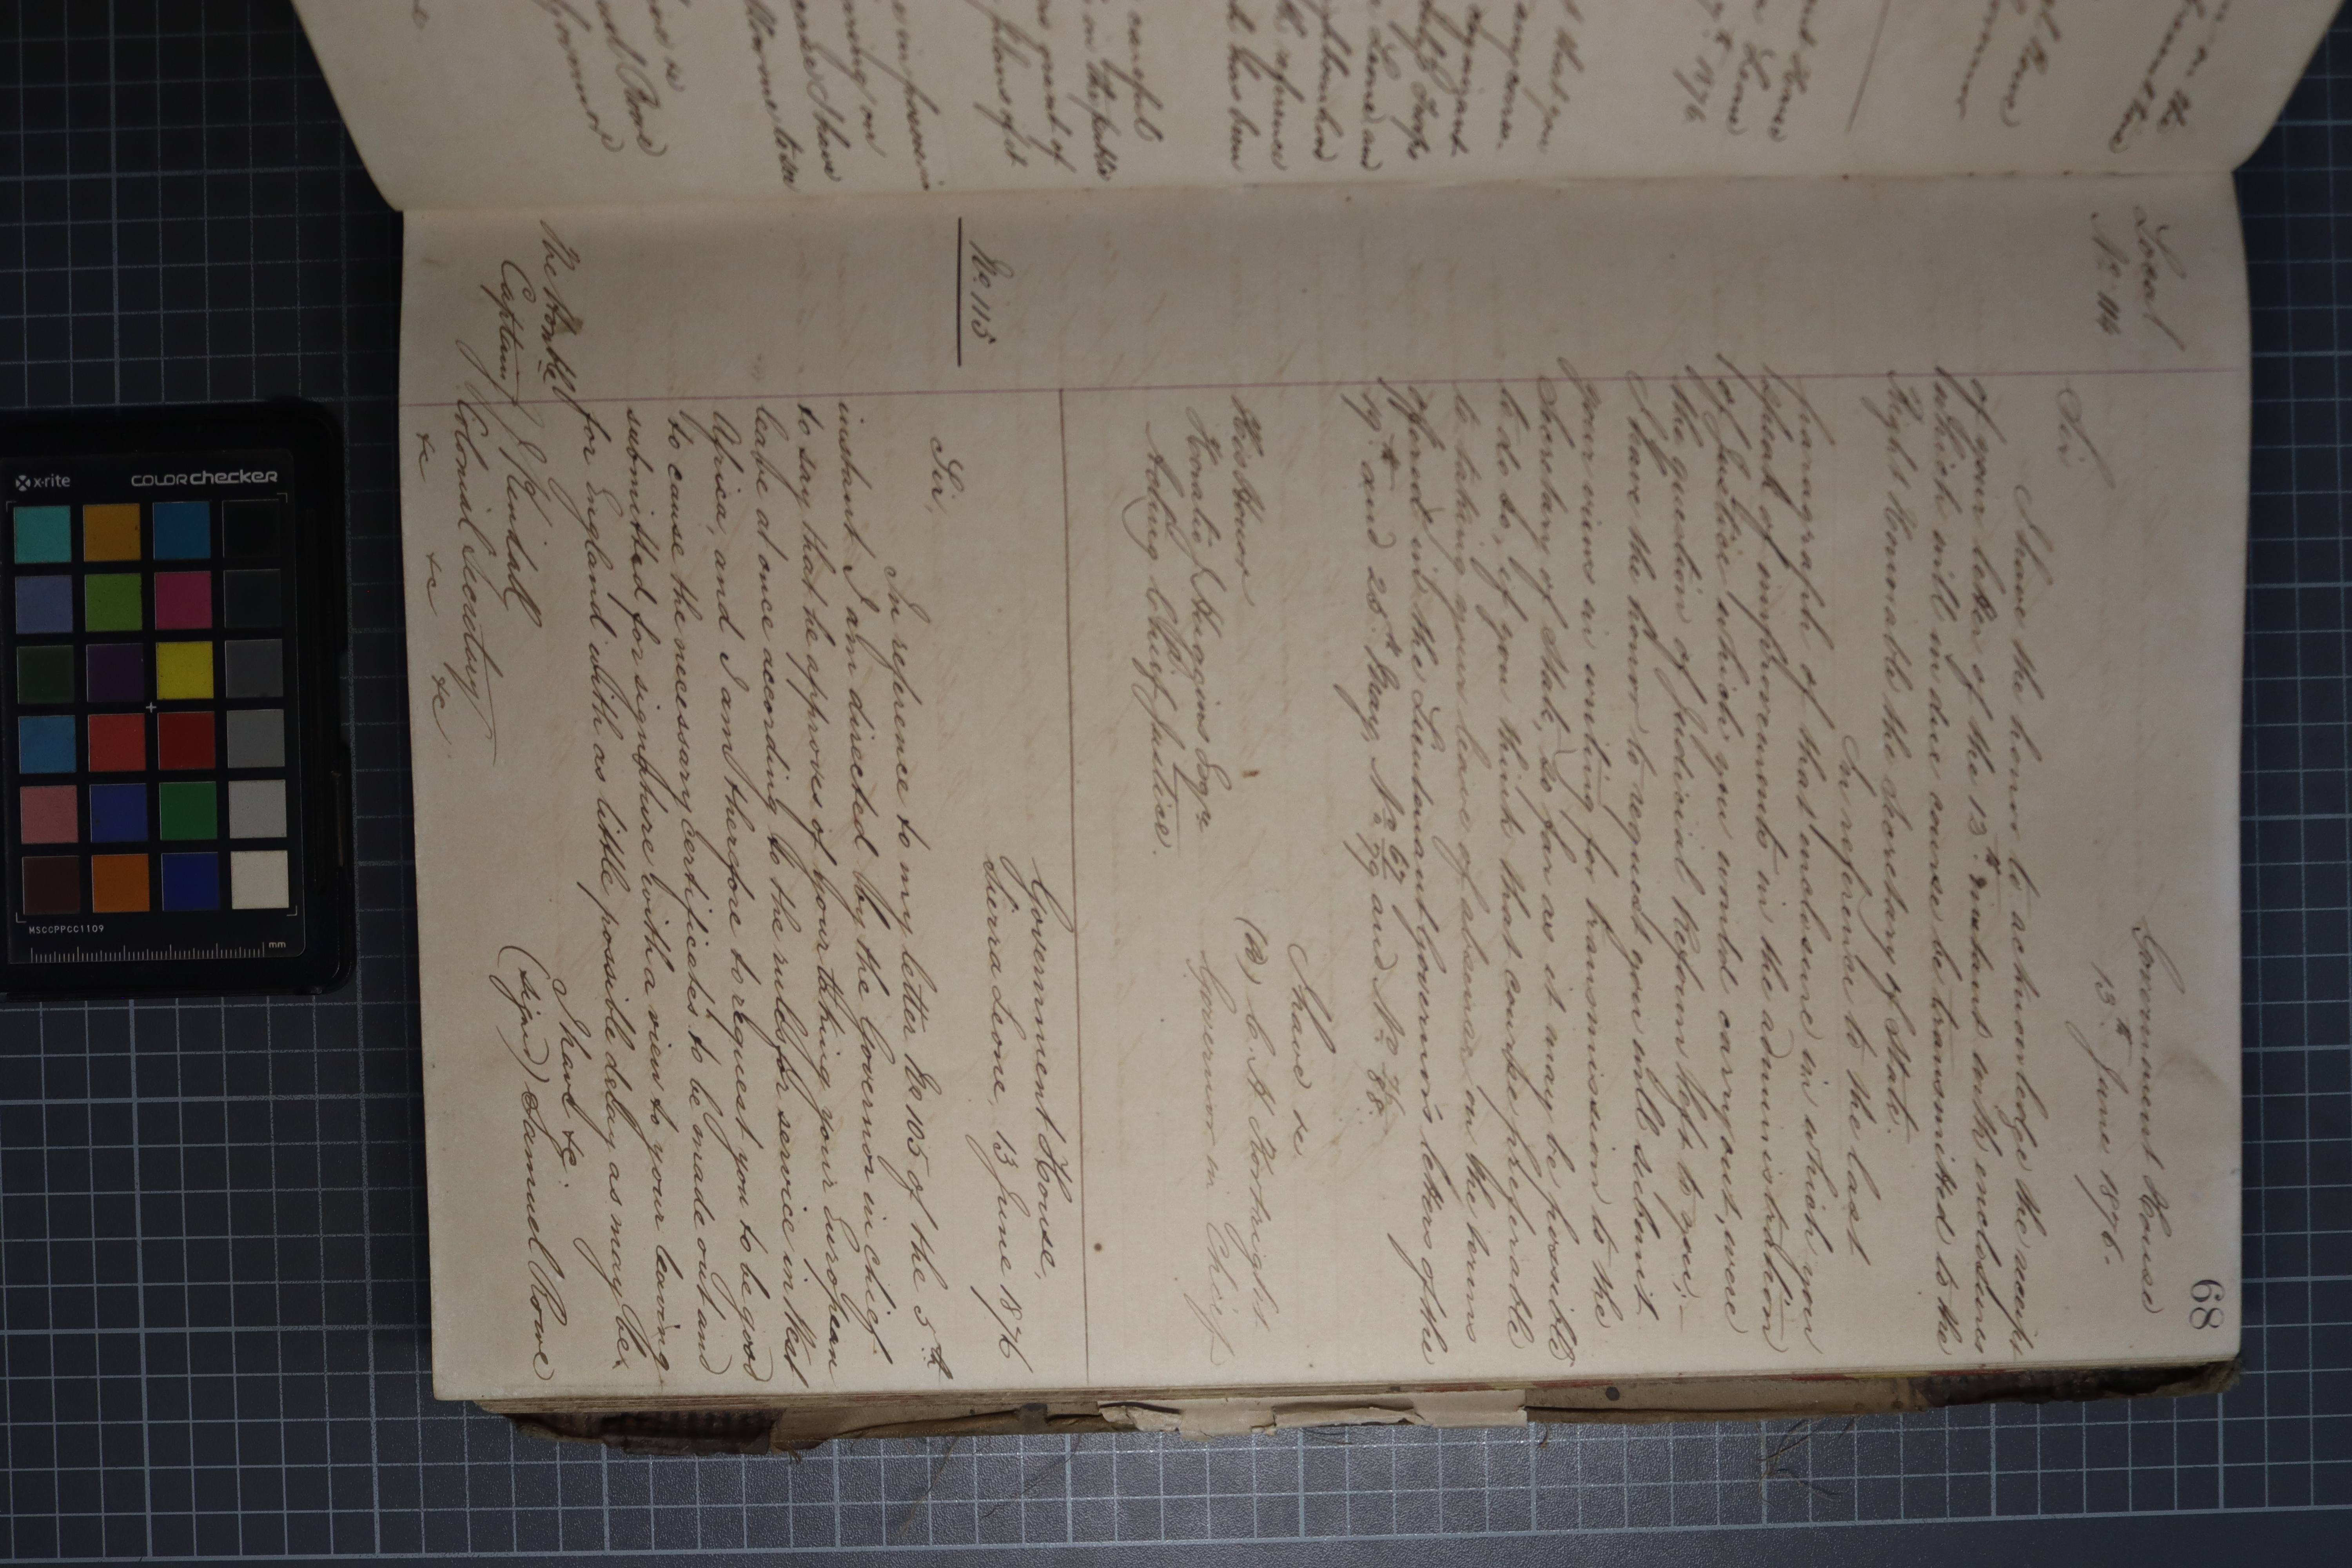 68
Local
No. 114
Government House
13th June 1876.
Sir
I have the honor to acknowledge the receipt
of your letter of the 13th instant with enclosures
which will in due course be transmitted to the
Right Honorable the Secretary of State.
In reference to the last
paragraph of that enclosure in which you
speak of improvements in the administration
of Justice which you would carry out, were
the question of Judicial Reform left to you;—
I have the honor to request you will submit
your views in writing for transmission to the
Secretary of State, so far as it may be possible
to do so, if you think that course preferable
to taking your leave of absence on the terms
offered in the Lieutenant Governor's letters of the
19th and 25th May, No 67/79 and No 76/88.
I have &c
(Sd) C. A. Kortright
Governor in Chief
His Honor
Horatio J Huggins Esqre
Acting Chief Justice.
No. 115
Government House,
Sierra Leone, 13 June 1876
Sir,
In reference to my letter No 105 of the 5th
instant I am directed by the Governor in chief
to say that he approves of your taking your European
leave at once according to the rules for service in West
Africa, and I am therefore to request you to be good
to cause the necessary Certificates to be made out and
submitted for signature with a view to your leaving
for England with as little possible delay as may be.
I have &c.
(signed) Samuel Rowe
The Honble
Captain J Kendall
Colonial Secretary
&c &c &c
x-rite
COLORCHECKER
MSCCPPCC1109
mm